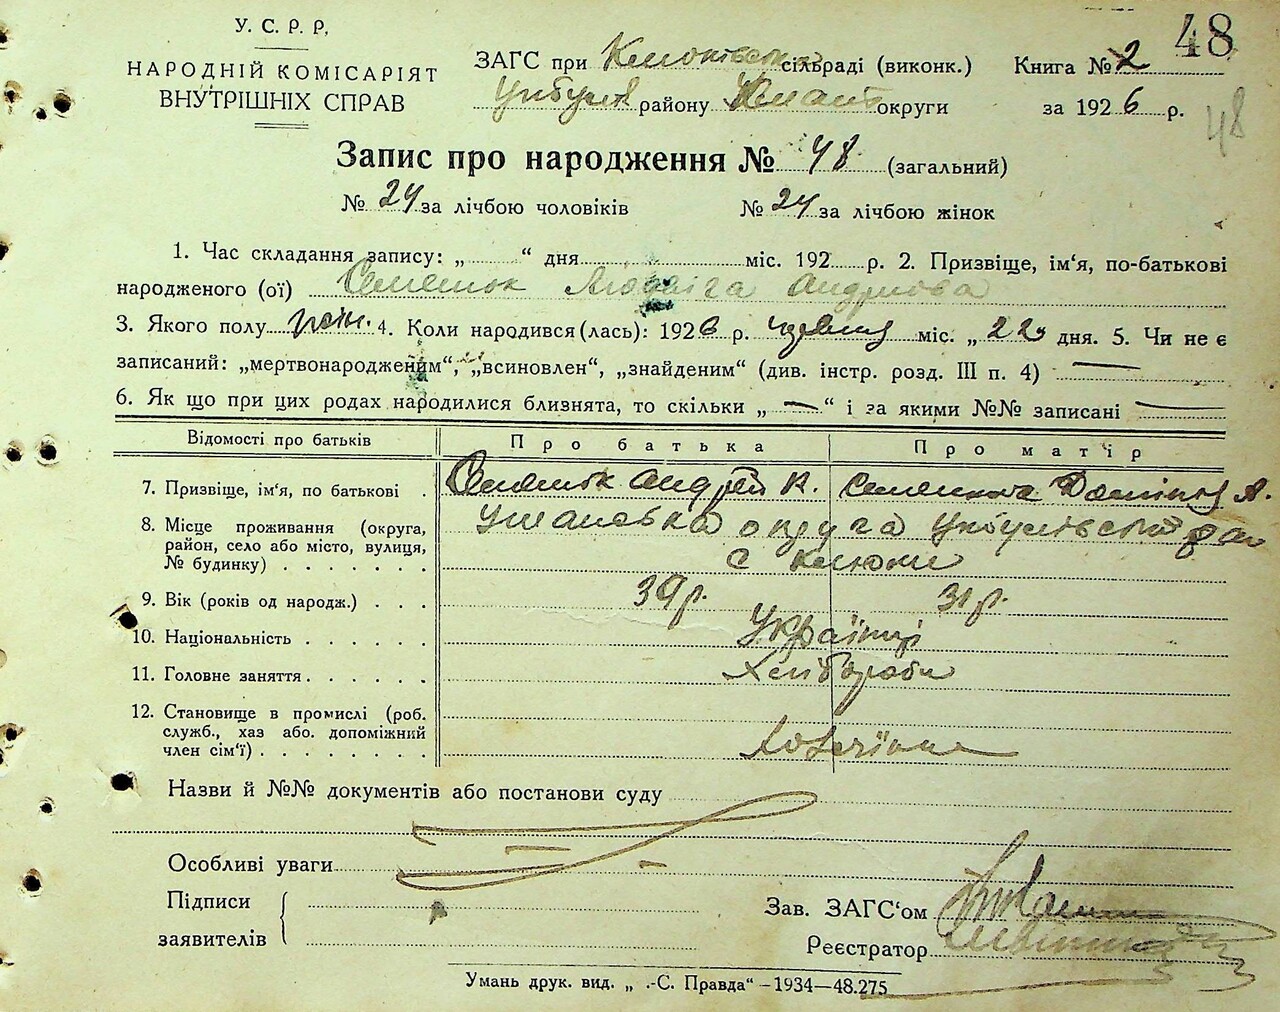 У. С. Р. Р.
НАРОДНІЙ КОМІСАРІЯТ
ВНУТРІШНІХ СПРАВ
48
ЗАГС при сільраді (виконк.) Книга № 2
району округи за 1926 р.
48
Запис про народження № 48 (загальний)
№ 24 за лічбою чоловіків № 24 за лічбою жінок
1. Час складання запису: „ “ дня міс. 192 р. 2. Призвіще, ім'я, по-батькові
народженого (ої) Семенюк Андріївна
3. Якого полу жін. 4. Коли народився (лась): 1926 р. червня міс. „ 22 дня. 5. Чи не є
записаний: „мертвонародженим“, „всиновлен“, „знайденим“ (див. інстр. розд. III п. 4) —
6. Як що при цих родах народилися близнята, то скільки „ — “ і за якими №№ записані —
Відомості про батьків Про батька Про матір
7. Призвіще, ім'я, по батькові . Семенюк Андрей К. А.
8. Місце проживання (округа, Уманська округа
район, село або місто, вулиця,
№ будинку) . . . . . . . с
9. Вік (років од народж.) . . . 39 р. 31 р.
10. Національність . . . . . Українці
11. Головне заняття . . . . . . Хлібороби
12. Становище в промислі (роб.
служб., хаз або. допоміжний
член сім'ї) . . . . . . .
Назви й №№ документів або постанови суду
Особливі уваги
Підписи
заявителів
Зав. ЗАГС'ом
Реєстратор
Умань друк. вид. „ .-С. Правда“ – 1934—48.275